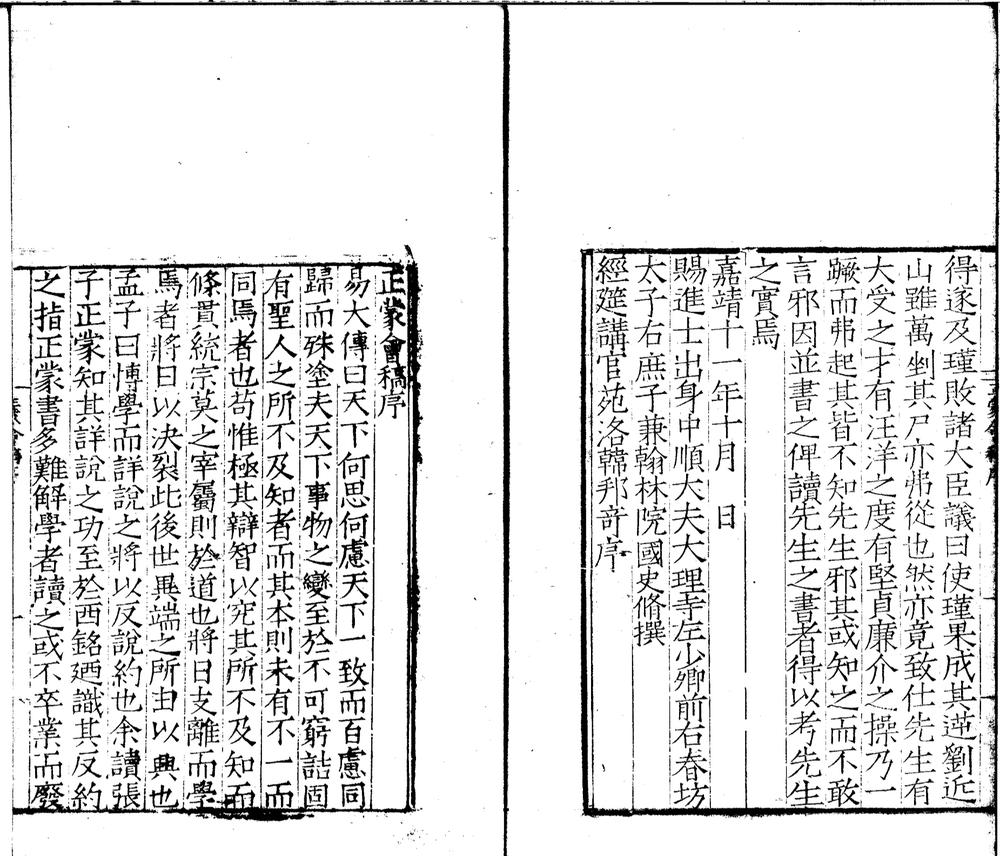 得遂及瑾敗諸大臣議曰使瑾果成其逆劉近
山雖萬剉其尸亦弗從也然亦竟致仕先生有
大受之才有汪洋之度有堅貞廉介之操乃一
蹶而弗起其皆不知先生邪其或知之而不敢
言邪因並書之俾讀先生之書者得以考先生
之實焉
嘉靖十一年十月 日
賜進士出身中順大夫大理寺左少卿前右春坊
太子右庶子兼翰林院國史脩撰
經筵講官苑洛韓邦奇序
正蒙會稿序
易大傳曰天下何思何慮天下一致而百慮同
歸而殊塗夫天下事物之變至於不可窮詰固
有聖人之所不及知者而其本則未有不一而
同焉者也苟惟極其辯智以究其所不及知而
條貫統宗莫之宰屬則於道也將日支離而學
焉者將日以決裂此後世異端之所由以興也
孟子曰博學而詳說之將以反說約也余讀張
子正蒙知其詳說之功至於西銘廼識其反約
之指正蒙書多難解學者讀之或不卒業而廢